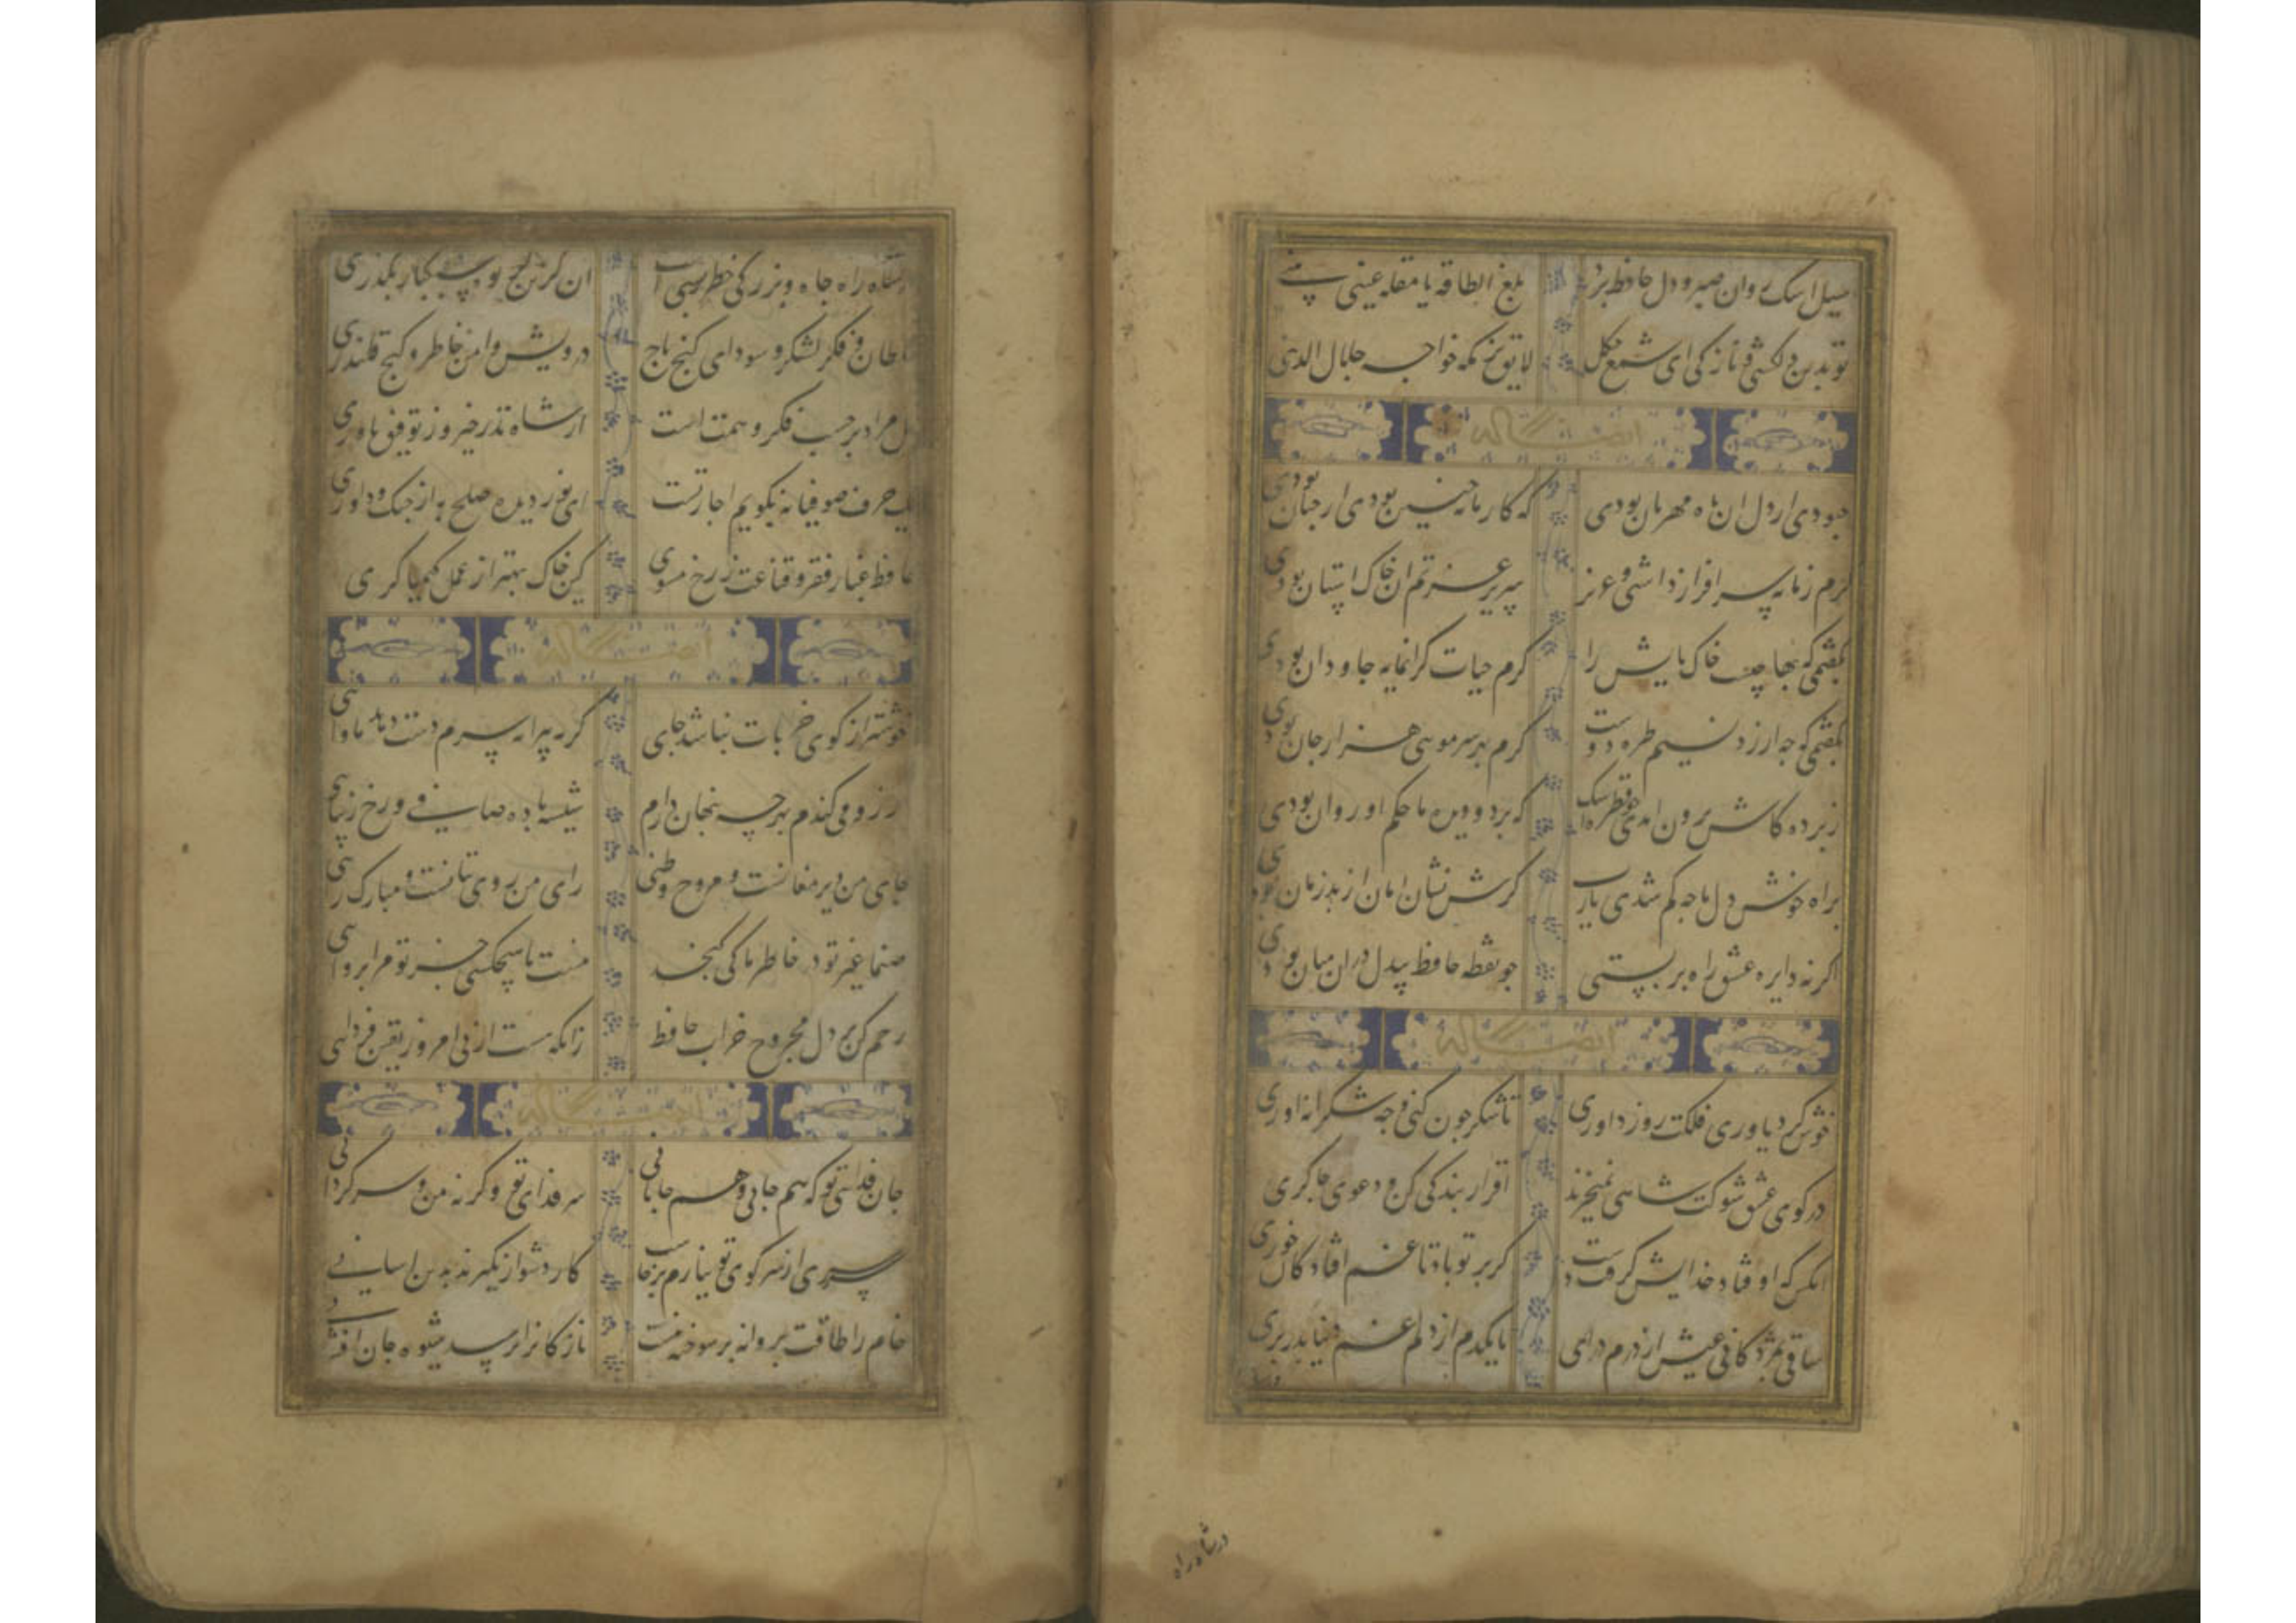 سیل اشک روان صبر و دل حافظ برد بلغ الطاقة یا مقلة عینی بینی
تو بدین دلکشی و نازکی ای شمع چکل لایق بزمکه خواجه جلال الدینی
ایضا له
جبودی ار دل ان ماه مهربان بودی که کار ما نه چنین بودی ار جنان بودی
کرم زمانه سرافراز داشتی و عزیز سریر عزتم ان خاک استان بودی
بکفتمی که بها چیست خاک پایش را کرم حیات کرانمایه جاودان بودی
بکفتمی که جه ارزد نسیم طره دوست کرم بهر سر مویی هزار جان بودی
ز برده کاش برون امدی جو قطره اشک که بر دو دیده ما حکم او روان بودی
برات خوش دل ما جه کم شدی یارب کرش نشان امان از بد زمان بودی
اکر نه دایره عشق راه بربستی جو نقطه حافظ بیدل دران میان بودی
ایضا له
خوش کرد یاوری فلکت روز داوری تا شکر جون کنی و جه شکرانه اوری
در کوی عشق شوکت شاهی نمیخرند اقرار بندکی کن و دعوی جاکری
انکس که اوفتاد خدایش کرفت دست کر بر تو باد تا غم افتادکان خوری
ساقی بمژدکانی عیش از درم درای تا یکدم از دلم غم دنیا بدر بری
در شاه راه
در شاه راه جاه و بزرکی خطر بسی است ان به کزین کریوه سبکبار بکذری
سلطان و فکر لشکر و سودای کنج و تاج درویش و امن خاطر و کنج قلندری
نیل مراد بر حسب فکر و همت است از شاه نذر خیر و ز توفیق یاوری
یک حرف صوفیانه بکویم اجازتست ای نور دیده صلح به از جنک و داوری
حافظ غبار فقر و قناعت ز رخ مشوی کین خاک بهتر از عمل کیمیاکری
ایضا له
خوشتر از کوی خرابات نباشد جای کر به پیرانه سرم دست دهد ماوای
ارزو می کندم هرچه بنهان دارم شیشه باده صافی و رخ زیبای
جای من دیر مغانست و مروح وطنی رای من روی بتانست و مبارک رای
صنما غیر تو در خاطر ما کی کنجد منت با هیچکسی جز تو مرا بروای
رحم کن بر دل مجروح خراب حافظ زانکه هست از بی امروز یقین فردای
ایضا له
جان فدای تو که هم جانی و هم جانانی سر فدای تو وکر نه من و سرکردانی
سرسری از سر کوی تو نیارم برخاست کار دشوار نکیرند بدین اسانی
خام را طاقت بروانه بر سوخته نیست نازکان را نرسد شیوه جان افشانی